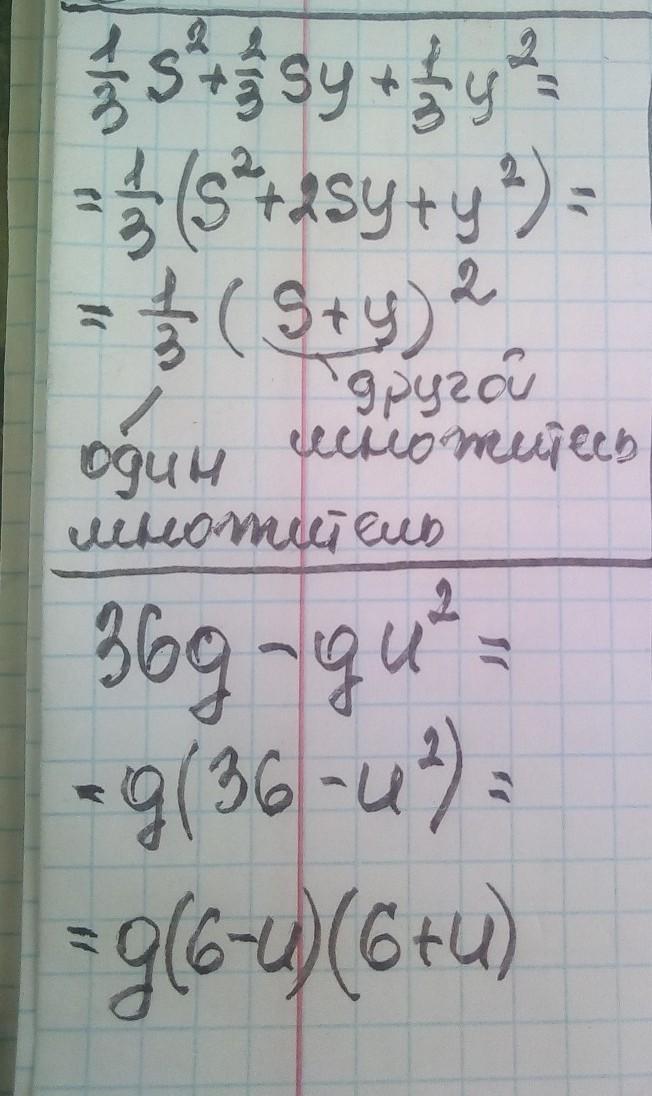 1/3 S² + 2/3 Sy + 1/3 y² =
= 1/3 (S² + 2Sy + y²) =
= 1/3 (S + y)²
другой
один множитель
множитель
36g - gu² =
= g(36 - u²) =
= g(6-u)(6+u)